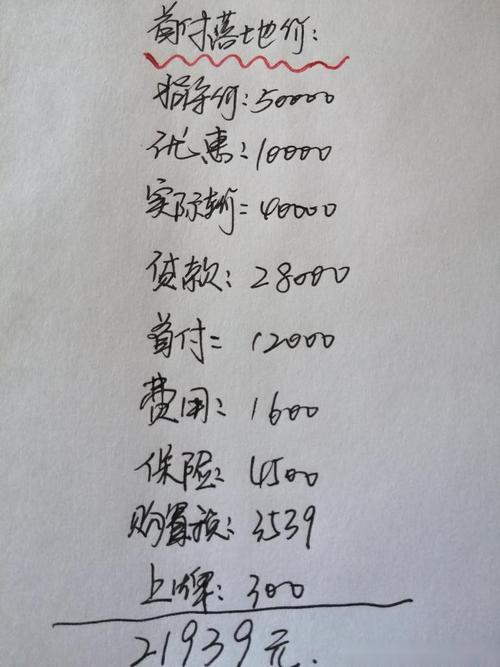 首付落地价:
指导价:50000
优惠:10000
实际车价=40000
贷款:28000
首付=12000
费用:1600
保险:4500
购置税:3539
上牌:300
21939元.